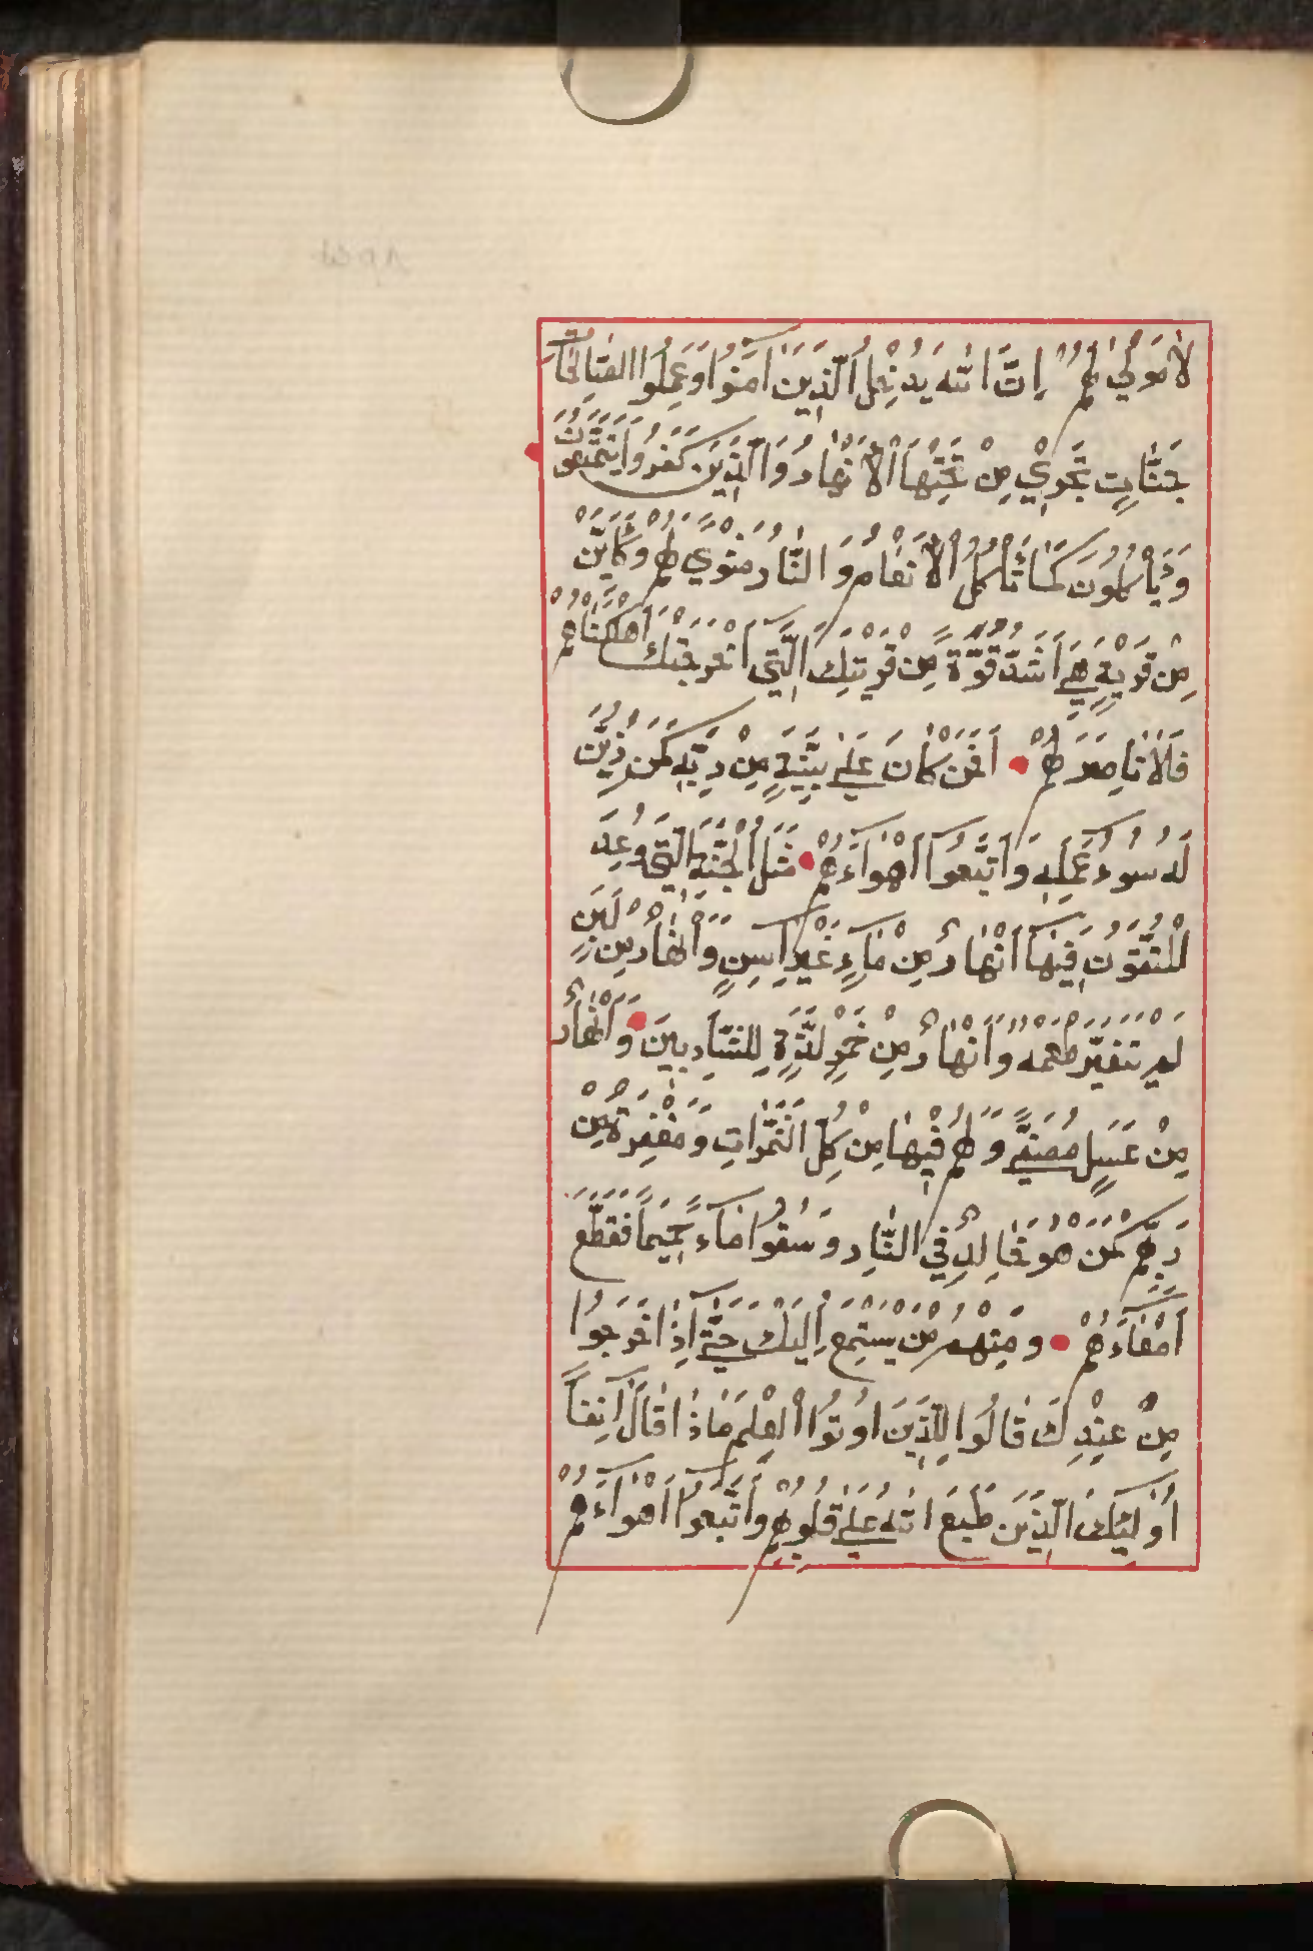 لَا مَوْلٰي لَهُمْ اِنَّ اللّٰهَ يُدْخِلُ الَّذِيَنَ اٰمَنُوا وَعَمِلُوا الصّٰالِحٰاتِ
جَنّٰاتٍ تَجْرِيْ مِنْ تَحْتِهَا الْاَنْهٰارُ وَالَّذِيَنَ كَفَرُوا يَتَمَتَّعُونَ
وَيَأْكُلُوُنَ كَمٰا تَأْكُلُ الْاَنْعٰامُ وَ النّٰارُ مَثْويً لَهُمْ وَكَاَيَّنْ
مِنْ قَرْيَةٍ هِيَ اَشَدُّ قُوَّةً مِنْ قَرْيَتِكَ الَّتِي اَخْرَجَتْكَ اَهْلَكْنٰاهُمْ
فَلَا نٰاصِرَ لَهُمْ اَفَمَنْ كٰانَ عَلٰي بَيِّنَةٍ مِنْ رَبِّهِ كَمَنْ زُيِّنَ
لَهُ سُوءُ عَمَلِهِ وَاَتَّبَعُوا اَهْوٰآءَهُمْ مَثَلُ الْجَنَّةِ الَّتِي وُعِدَ
الْمُتَّقُونَ فِيهٰا اَنْهٰارٌ مِنْ مٰاءٍ غَيْرِ اٰسِنٍ وَاَنْهٰارٌ مِنْ لَبَنٍ
لَمْ يَتَغَيَّرْ طَعْمُهُ وَاَنْهٰارٌ مِنْ خَمْرٍ لَذَّةٍ لِلشّٰارِبِينَ وَاَنْهٰارٌ
مِنْ عَسَلٍ مُصَفّيً وَلَهُمْ فِيهٰا مِنْ كُلِّ الثَّمَرٰاتِ وَمَغْفِرَةٌ مِنْ
رَبِّهِمْ كَمَنْ هُوَ خٰالِدٌ فِي النّٰارِ وَسُقُوا مٰآءً حَمِيماً فَقَطَّعَ
اَمْعٰآءَهُمْ وَمِنْهُمْ مَنْ يَسْتَمِعُ اِلَيْكَ حَتّٰي اِذٰا خَرَجُوا
مِنْ عِنْدِكَ قٰالُوا لِلَّذِيَنَ اُوتُوا الْعِلْمَ مٰاذٰا قٰالَ آنِفاً
اُولٰئِكَ الَّذِيَنَ طَبَعَ اللّٰهُ عَلٰي قُلُوبِهِمْ وَاَتَّبَعُوا اَهْوٰآءَهُمْ